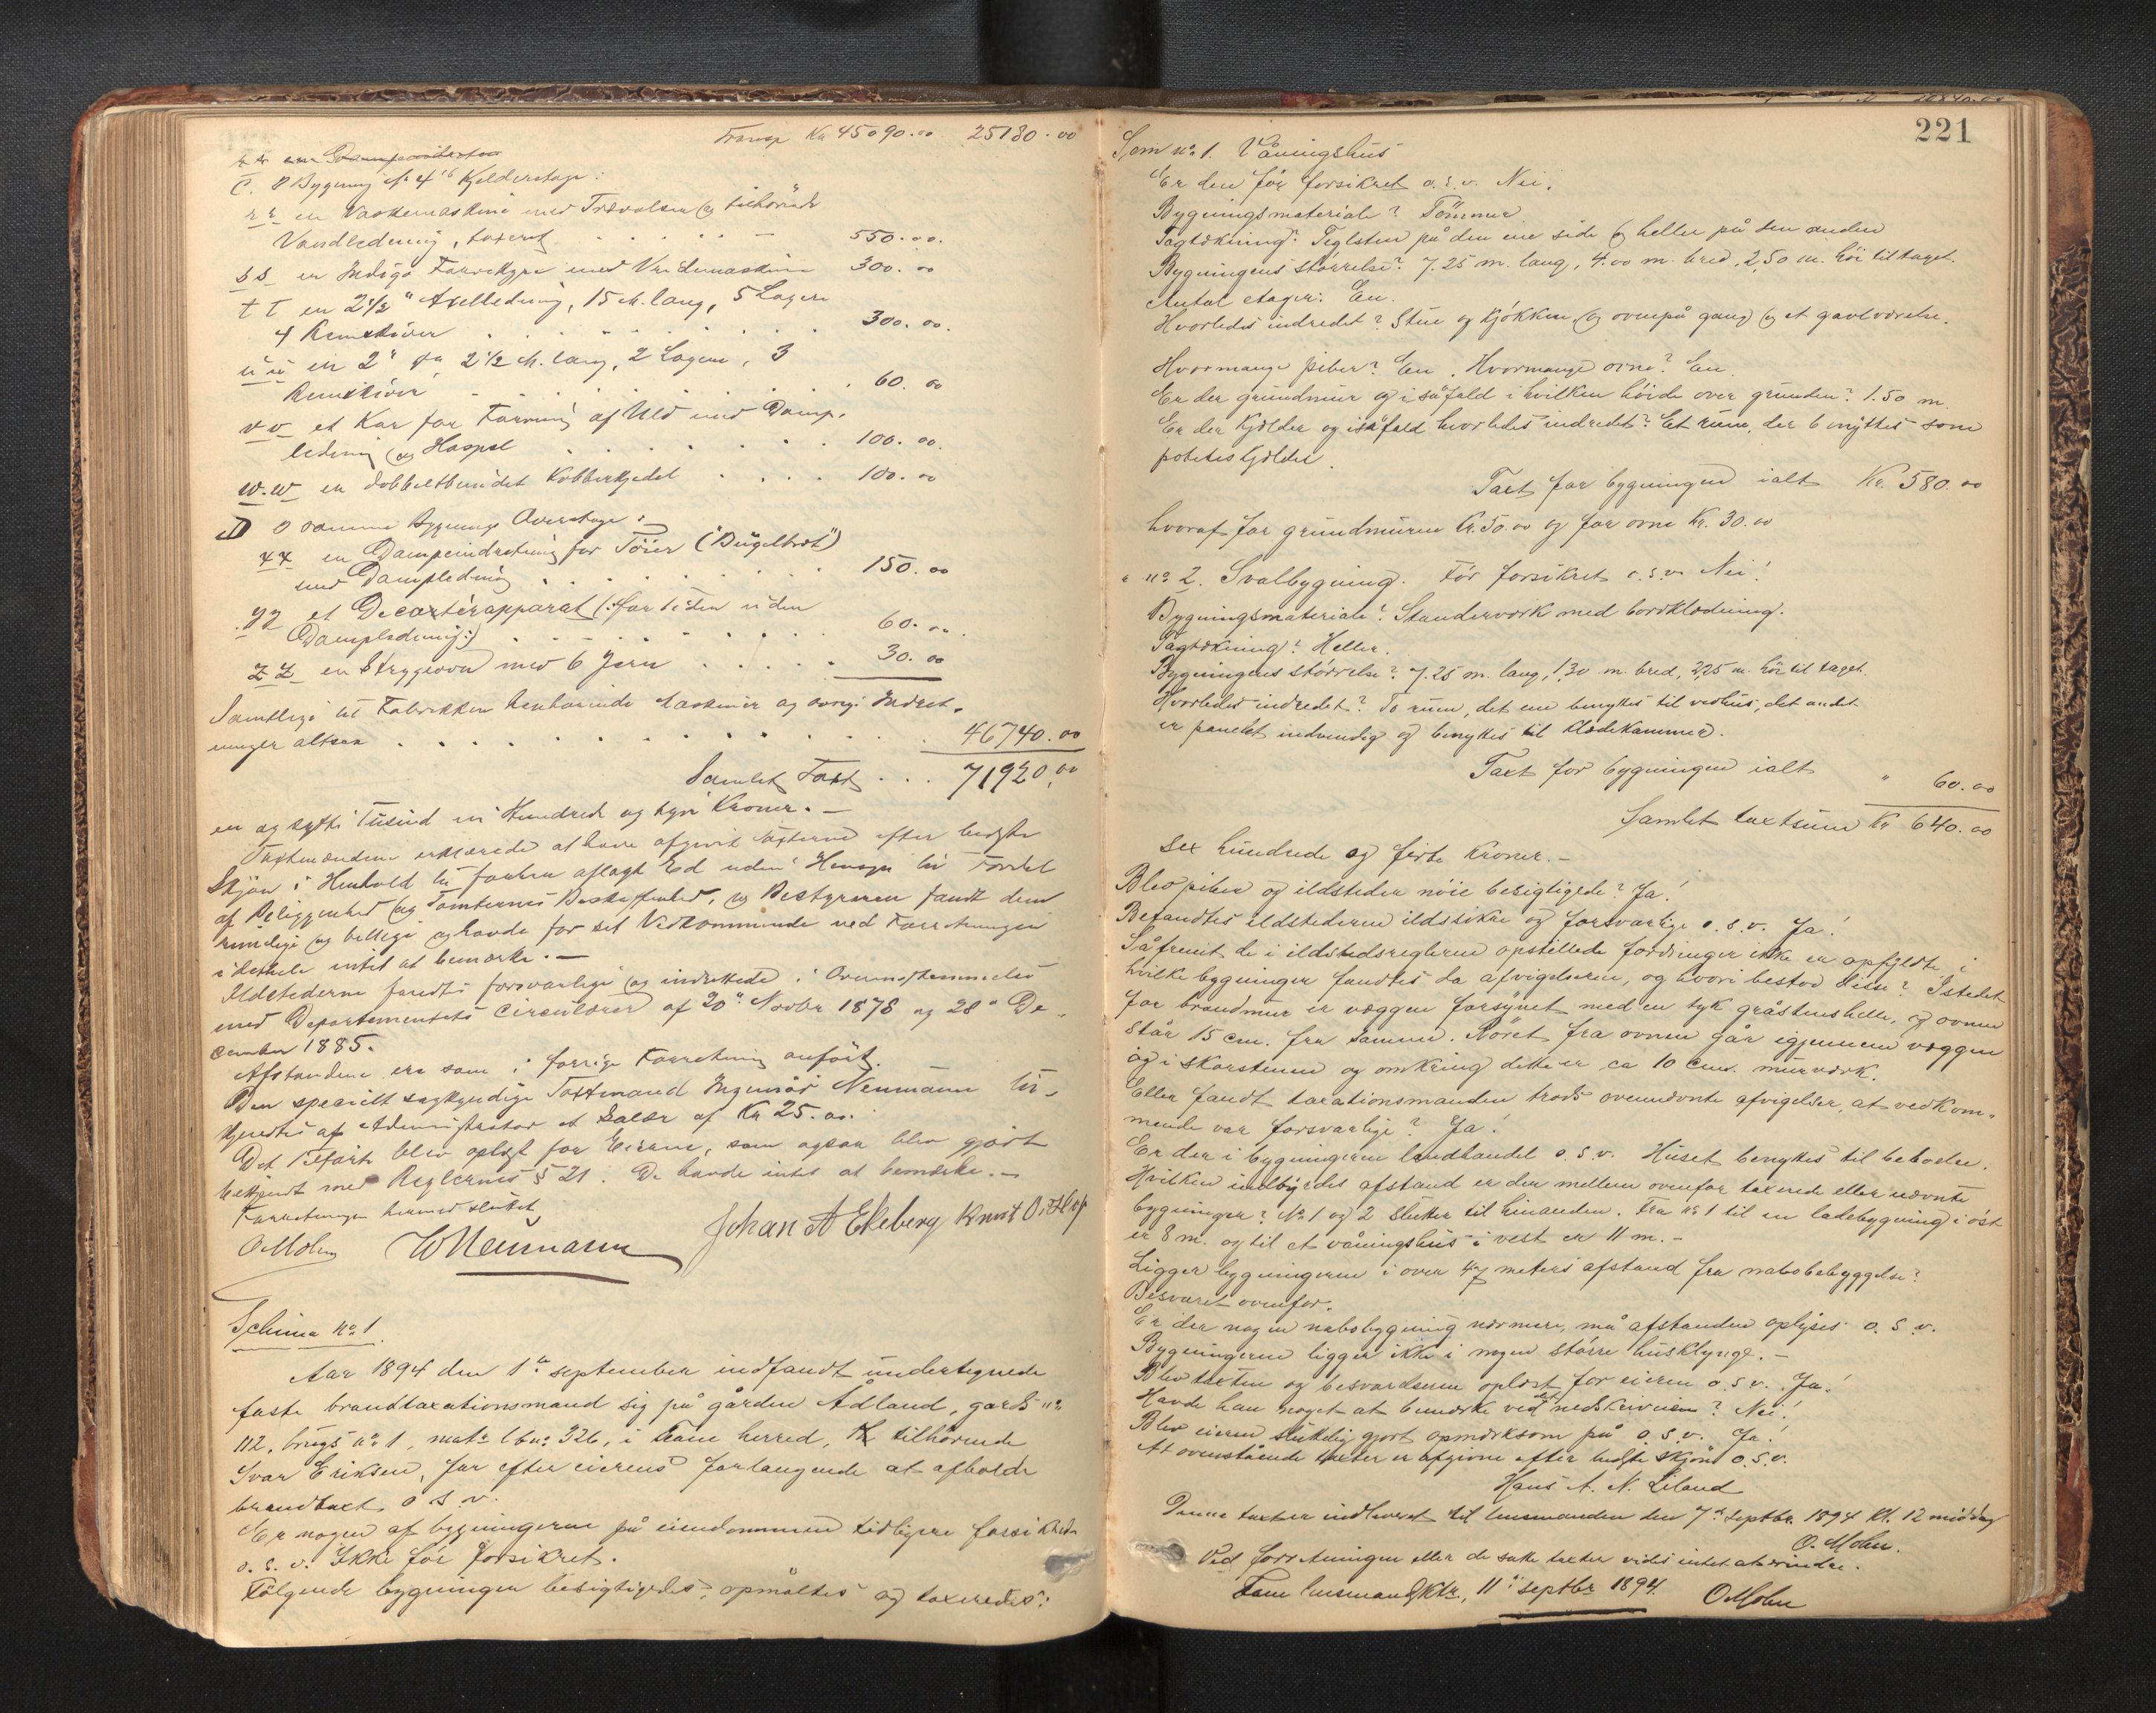 Transp Kr 45090.00 25180.00
C. I Bygning No 4's Kjelderetage:
rr en Vaskemaskine med Trævalser og tilhörende
Vandledning, taxeret 550.00.
ss en Indigo Farvekype med Vridemaskine 300.00
tt en 2 1/2" Axelledning, 15 M. lang, 5 Lagere
4 Remskiver 300.00.
uu en 2" do 2 1/2 M. lang, 2 Lagere, 3
Remskiver 60.00
vv et Kar for Farvning af Uld med Damp-
ledning og Haspel 100.00.
w.w en dobbeltbundet Kobberkjedel 100.00
D I samme Bygnings Overetage:
xx en Dampindretning for Törier ("Bügelbret")
med Dampledning 150.00
yy et Decatérapparat (: for Tiden uden
Dampledning:) 60.00.
zz en Strygeovn med 6 Jern 30.00
Samtlige til Fabrikken henhörende Maskiner og övrige Indret-
ninger altsaa 46740.00
Samlet Taxt 71920.00
en og sytti Tusind ni Hundrede og tyve Kroner.-
Taxtmændene erklærede at have afgivet Taxterne efter bedste
Skjön i Henhold til forhen aflagt Ed uden Hensyn til Fordel
af Beliggenhed og Tomternes Beskaffenhed, og Bestyreren fandt dem
rimelige og billige og havde for sit Vedkommende ved Forretningen
i det hele intet at bemærke.-
Ildstederne fandtes forsvarlige og indrettede i Overensstemmelse
med Departementets Circulærer af 20de Novbr 1878 og 28de De-
cember 1885.
Afstandene ere som i forrige Forretning anfört.
Den specielt sagkyndige Taxtmand Ingeniör Neumann til-
kjendtes af Administrator et Salær af Kr 25.00.
Det Tilförte blev oplæst for Eierne, som ogsaa blev gjort
bekjendt med Reglernes § 21. De havde intet at bemærke.-
Forretningen hermed sluttet
O. Mohn W Neumann Johan A Ekeberg Knut O.
Schema No 1.
Aar 1894 den 1ste september indfandt undertegnede
faste brandtaxationsmand sig på gården Ådland, gards No
112, brugs No 1, matr. lbno. 326, i Fane herred, tilhørende
Ivar Eriksen, for efter eierens forlangende at afholde
brandtaxt o s v.
Er nogen af bygningerne på eiendommen tidligere forsikret
o. s. v. Ikke för forsikret.
Fölgende bygninger besigtigedes, opmåltes og taxeredes:
221
Som No 1. Våningshus
Er den för forsikret o. s. v. Nei.
Bygningsmateriale? Tömmer
Tagtækning? Teglsten på den ene side og heller på den anden
Bygningens störrelse? 7.25 m. lang, 4.00 m. bred, 2,50 m. höi til taget.
Antal etager: En.
Hvorledes indredet? Stue og kjökken, og ovenpå gang og et gavlværelse.
Hvormange piber? En. Hvormange ovne? En.
Er der grundmur og i såfald i hvilken höide over grunden? 1.50 m.
Er der Kjelder og isåfald hvorledes indredet? Et rum, der benyttes som
poteteskjelder.
Taxt for bygningen ialt Kr. 580.00
hvoraf for grundmuren Kr. 50.00 og for ovne Kr. 30.00
" No 2. Svalbygning. För forsikret o. s. v. Nei!
Bygningsmateriale? Standerværk med bordklædning.
Tagtækning? Heller.
Bygningens störrelse? 7.25 m. lang, 1,30 m. bred, 2,25 m. höi til taget.
Hvorledes indredet? To rum, det ene benyttes til vedhus, det andet
er panelet indvendig og benyttes til klædekammer.
Taxt for bygningen ialt " 60.00
Samlet taxtsum Kr 640.00
sex hundrede og firti Kroner.-
Blev piber og ildsteder nöie besigtigede? Ja!
Befandtes ildstederne ildssikre og forsvarlige o. s. v. Ja!
Såfremt de i ildstedsreglerne opstillede fordringer ikke er opfyldte, i
hvilke bygninger fandtes da afvigelserne, og hvori bestod disse? Istedet
for brandmur er væggen forsynet med en tyk gråstenshelle, og ovnen
står 15 cm. fra samme. Röret fra ovnen går igjennem væggen
og i skorstenen og omkring dette er ca 10 cm. murværk.
Eller fandt taxationsmanden trods ovennævnte afvigelser, at vedkom-
mende var forsvarlige? Ja!
Er der i bygningerne landhandel o. s. v. Huset benyttes til beboelse.
Hvilken indbyrdes afstand er der mellem ovenfor taxerede eller nævnte
bygninger? No 1 og 2 slutter til hinanden. Fra No 1 til en ladebygning i öst
er 8 m. og til et våningshus i vest er 11 m.-
Ligger bygningerne i over 47 meters afstand fra nabobebyggelse?
Besvaret ovenfor.
Er der nogen nabobygning nærmere, må afstanden oplyses o. s. v.
Bygningerne ligger ikke i nogen större husklynge.-
Blev taxten og besvarelserne oplæst for eieren o. s. v. Ja!
Havde han noget at bemærke ved det nedskrivne? Nei!
Blev eieren skikkelig gjort opmærksom på o. s. v. Ja!
At ovenstående taxter er afgivne efter bedste skjön o. s. v.
Hans A. N. Liland
Denne taxt er indleveret til lensmanden den 7de Septbr. 1894 Kl. 12 middag
O. Mohn.
Ved forretningen eller de satte taxter vides intet at erindre.
Fane lensmandsktr., 11te septbr 1894. O Mohn